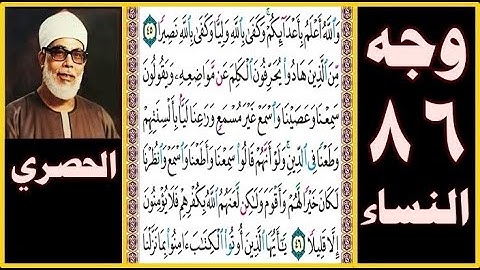 وجه
٨٦
النساء
وَاللَّهُ أَعْلَمُ بِأَعْدَائِكُمْ ۚ وَكَفَىٰ بِاللَّهِ وَلِيًّا وَكَفَىٰ بِاللَّهِ نَصِيرًا ٤٥
مِّنَ الَّذِينَ هَادُوا يُحَرِّفُونَ الْكَلِمَ عَن مَّوَاضِعِهِ وَيَقُولُونَ
سَمِعْنَا وَعَصَيْنَا وَاسْمَعْ غَيْرَ مُسْمَعٍ وَرَاعِنَا لَيًّا بِأَلْسِنَتِهِمْ
وَطَعْنًا فِي الدِّينِ ۚ وَلَوْ أَنَّهُمْ قَالُوا سَمِعْنَا وَأَطَعْنَا وَاسْمَعْ وَانظُرْنَا
لَكَانَ خَيْرًا لَّهُمْ وَأَقْوَمَ وَلَٰكِن لَّعَنَهُمُ اللَّهُ بِكُفْرِهِمْ فَلَا يُؤْمِنُونَ
إِلَّا قَلِيلًا ٤٦ يَا أَيُّهَا الَّذِينَ أُوتُوا الْكِتَابَ آمِنُوا بِمَا نَزَّلْنَا
الحصري